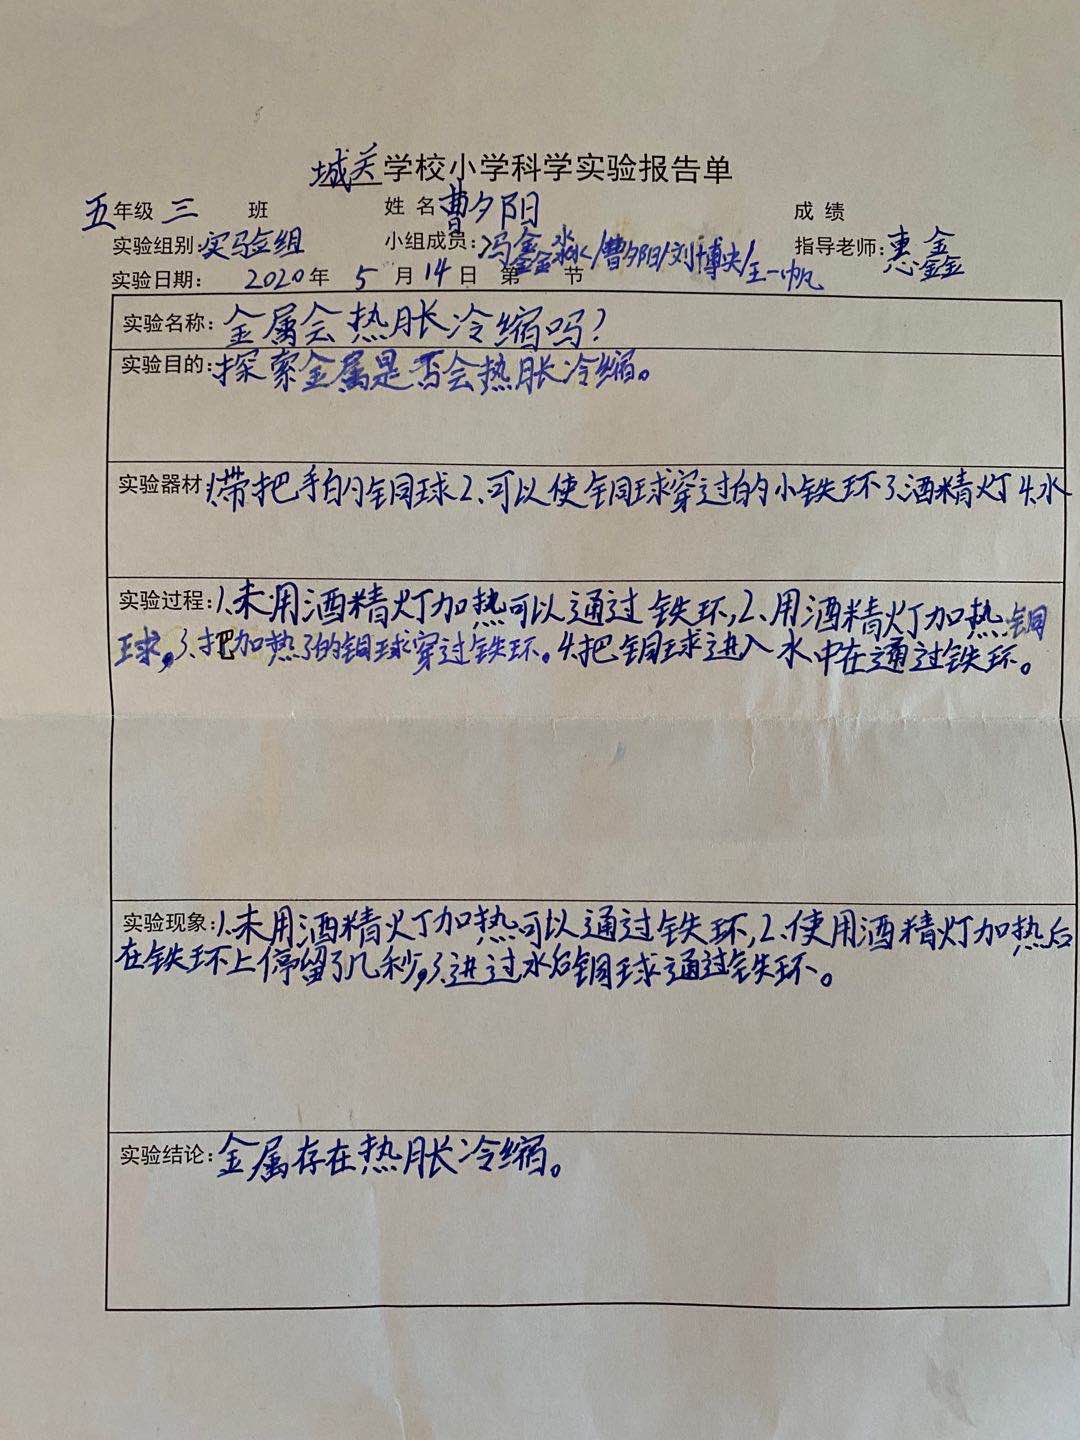 城关学校小学科学实验报告单
五年级 三 班 姓 名 曹夕阳 成 绩
实验组别:实验组 小组成员:冯鑫淼/曹夕阳/刘博央/王一帆 指导老师:惠鑫
实验日期: 2020年 5 月 14 日 第 节
实验名称:金属会热胀冷缩吗?
实验目的:探索金属是否会热胀冷缩。
实验器材 1.带把手的铜球2、可以使铜球穿过的小铁环3、酒精灯4.水
实验过程:1.未用酒精灯加热可以通过铁环,2、用酒精灯加热铜
球,3、把加热了的铜球穿过铁环。4.把铜球进入水中在通过铁环。
实验现象:1.未用酒精灯加热可以通过铁环,2、使用酒精灯加热后
在铁环上停留了几秒,3、进过水后铜球通过铁环。
实验结论:金属存在热胀冷缩。